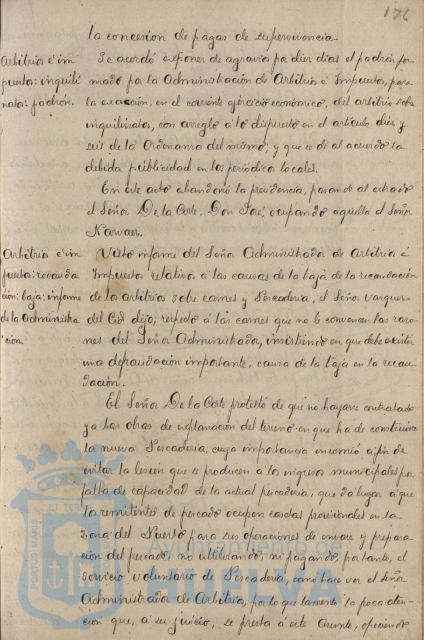 176
la concesion de pagas de supervivencia.
Arbitrios é im
puestos: inquili
nato: padrón.
Se acordó exponer de agravio por diez dias el padrón for
mado por la Administración de Arbitrios é Impuestos, para
la exacción, en el corriente ejercicio económico, del arbitrio sobre
inquilinato, con arreglo á lo dispuesto en el artículo diez y
seis de la Ordenanza del mismo; y que se dé al acuerdo la
debida publicidad en los periódicos locales.
En este acto abandonó la presidencia, pasando al estrado
el Señor De la Corte, Don José, ocupando aquella el Señor
Narvaez.
Arbitrios é im
puestos: recauda
ción: baja: informe
de la Administra
ción.
Visto informe del Señor Administrador de Arbitrios é
Impuestos relativo á las causas de la baja de la recaudación
de los arbitrios sobre carnes y Pescadería, el Señor Vargues
del Cid dijo, respecto á las carnes que no le convencen las razo
nes del Señor Administrador, insistiendo en que debe existir
una defraudación importante, causa de la baja en la recau
dación.
El Señor De la Corte protestó de que no hayan contratado
ya las obras de explanación del terreno en que ha de construirse
la nueva Pescadería, cuya importancia encomió a fin de
evitar la lesión que se producen á los ingresos municipales por
falta de capacidad de la actual pescadería, que da lugar á que
los remitentes de pescado ocupen casetas provisionales en la
zona del Puerto para sus operaciones de envase y prepara
ción del pescado, no utilizando, ni pagando, por tanto, el
servicio voluntario de Pescadería, como hace ver el señor
Administrador de Arbitrios, por lo que lamenta la poca aten
ción que, a su juicio, se presta á este asunto, ofreciendo
PORTUS MARIS
Ayuntamiento
HUELVA